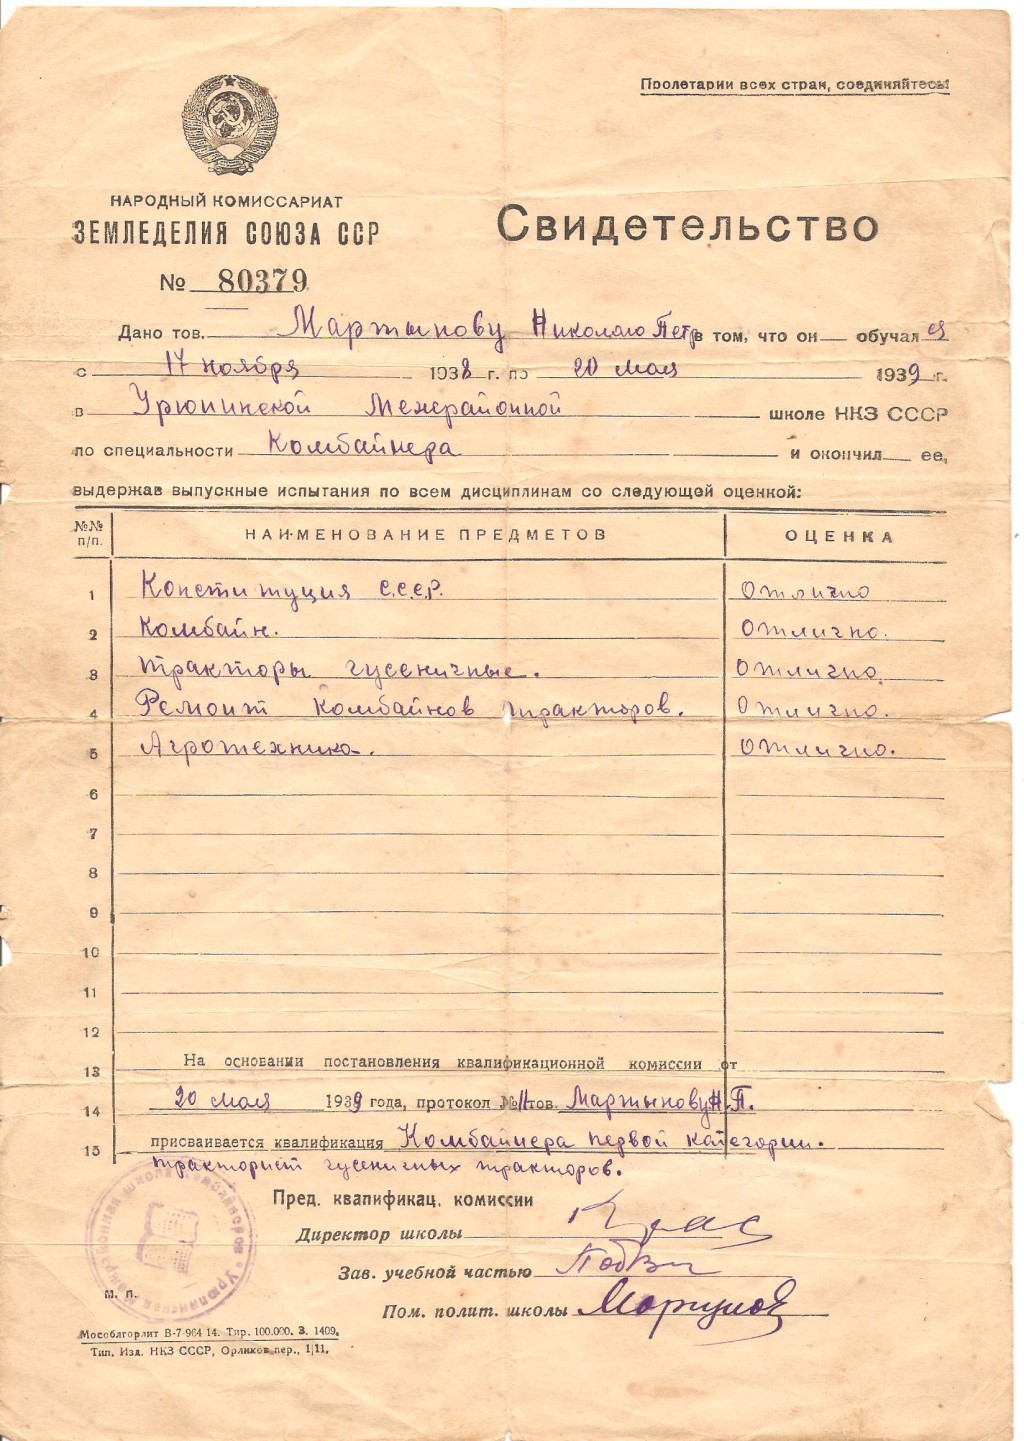 Пролетарии всех стран, соединяйтесь!
НАРОДНЫЙ КОМИССАРИАТ
ЗЕМЛЕДЕЛИЯ СОЮЗА ССР
№ 80379
Свидетельство
Дано тов. Мартынову Николаю Петр в том, что он обучался
с 17 ноября 1938 г. по 20 мая 1939 г.
в Урюпинской Межрайонной школе НКЗ СССР
по специальности Комбайнера и окончил ее,
выдержав выпускные испытания по всем дисциплинам со следующей оценкой:
№№ п/п. НАИМЕНОВАНИЕ ПРЕДМЕТОВ ОЦЕНКА
1 Конституция С.С.С.Р. Отлично
2 Комбайн. Отлично.
3 Тракторы гусеничные. Отлично.
4 Ремонт Комбайнов тракторов. Отлично.
5 Агротехника. Отлично.
6
7
8
9
10
11
12
На основании постановления квалификационной комиссии от
13
14 20 мая 1939 года, протокол № 11 тов. Мартынову Н.П.
15 присваивается квалификация Комбайнера первой категории.
тракторист гусеничных тракторов.
Пред. квалификац. комиссии
Директор школы
Зав. учебной частью
Пом. полит. школы
м. п.
Межрайонная школа комбайнеров * Урюпинская
Мособлгорлит В-7-964 14. Тир. 100.000. З. 1409.
Тип. Изд. НКЗ СССР, Орликов пер., 1/11.